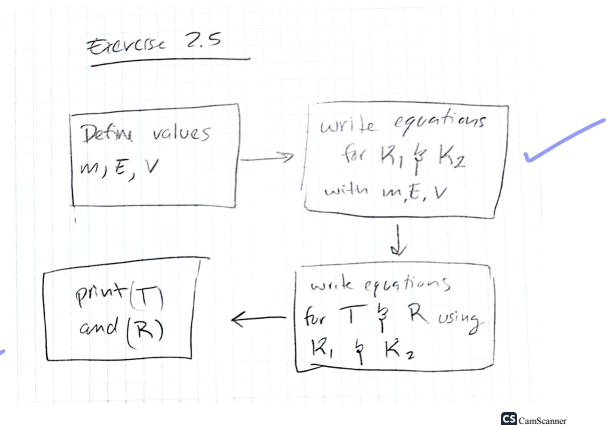 Exercise 2.5
Define values
m, E, V
write equations
for K₁ & K₂
with m, E, V
write equations
for T & R using
K₁ & K₂
print(T)
and (R)
CS CamScanner